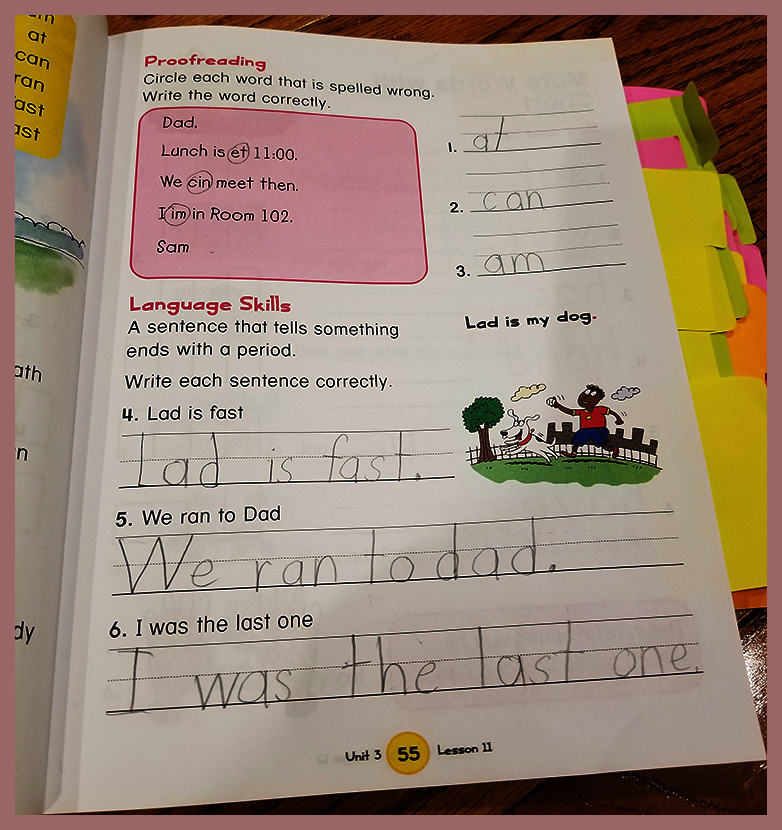 am
at
can
ran
fast
last
Proofreading
Circle each word that is spelled wrong.
Write the word correctly.
Dad.
Lunch is et 11:00.
We cin meet then.
I im in Room 102.
Sam
1. at
2. can
3. am
Language Skills
A sentence that tells something
ends with a period.
Lad is my dog.
Write each sentence correctly.
4. Lad is fast
Lad is fast.
5. We ran to Dad
We ran to dad.
6. I was the last one
I was the last one.
Unit 3 55 Lesson 11